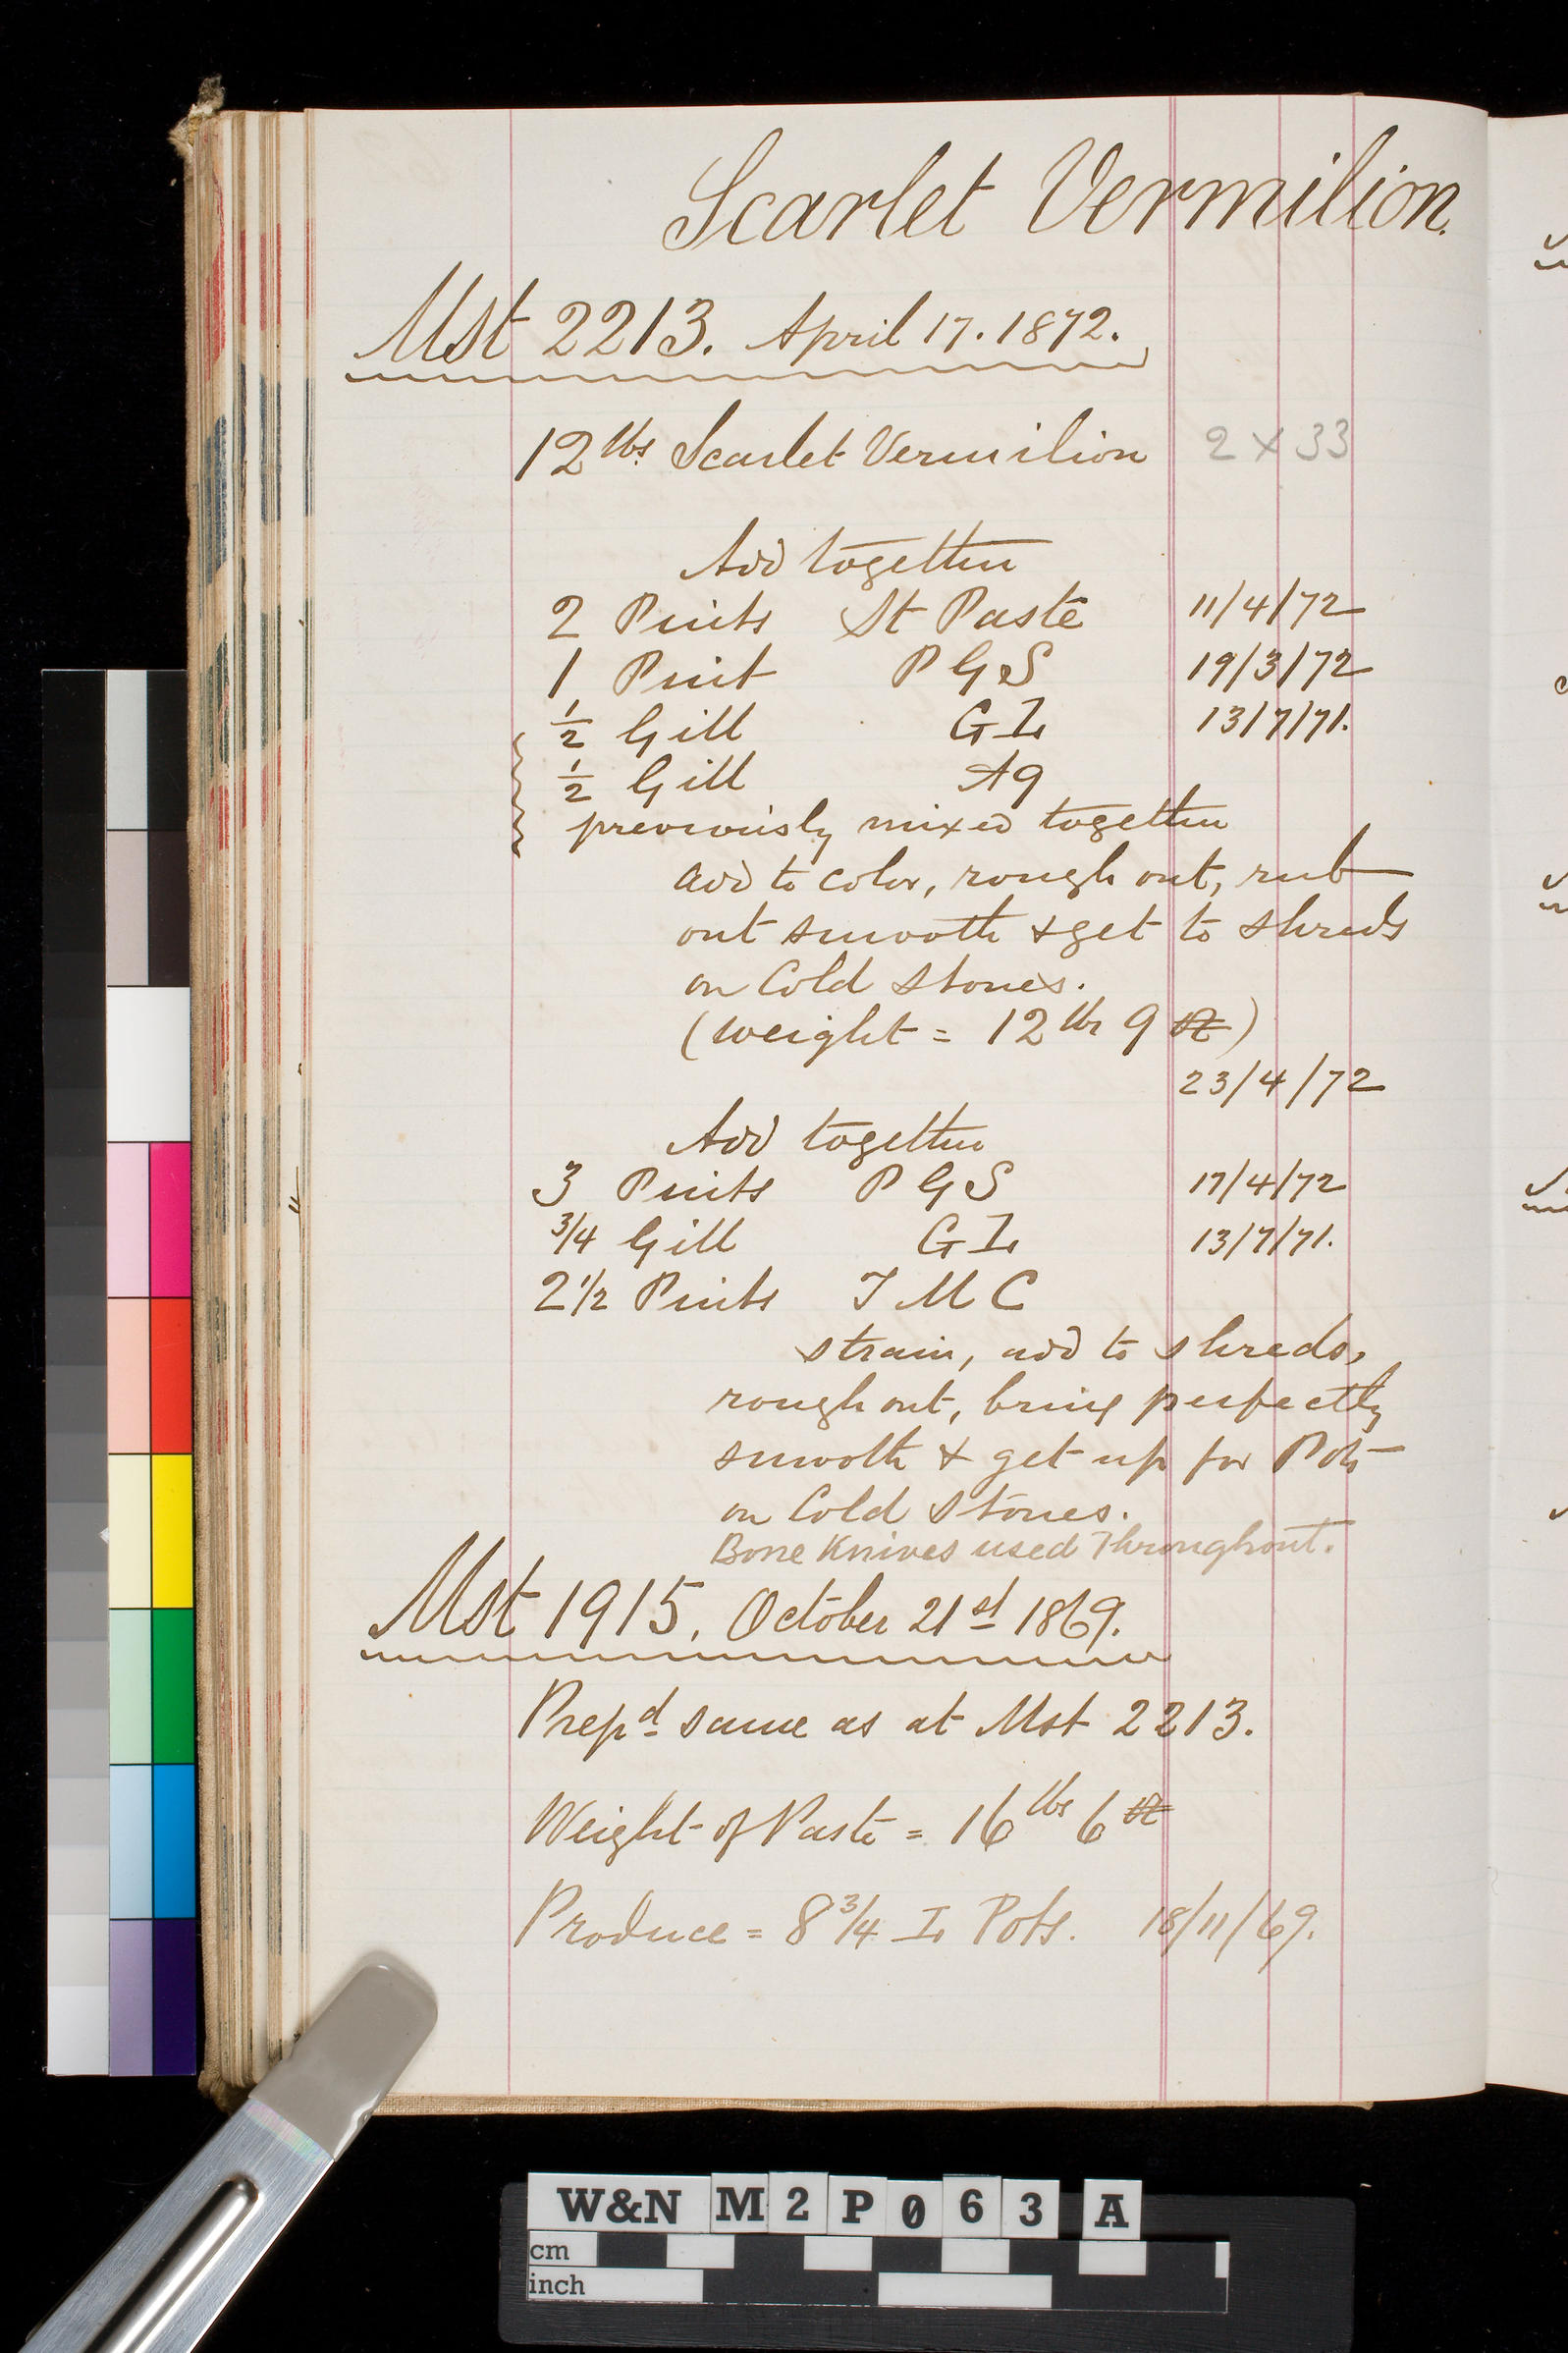 Scarlet Vermilion.
Mst 2213. April 17. 1872.
12 lbs. Scarlet Vermilion 2 x 33
Add together
2 Pints St Paste 11/4/72
1 Pint P G S 19/3/72
1/2 Gill G I 13/7/71.
1/2 Gill Aq
previously mixed together
add to color, rough out, rub
out smooth & get to shreds
on Cold Stones.
(weight = 12 lbs 9 oz)
23/4/72
Add together
3 Pints P G S 17/4/72
3/4 Gill G I 13/7/71.
2 1/2 Pints T M C
strain, add to shreds,
rough out, bring perfectly
smooth & get up for Pots
on Cold Stones.
Bone Knives used Throughout.
Mst 1915. October 21st 1869.
Prepd same as at Mst 2213.
Weight of Paste = 16 lbs 6 oz
Produce = 8 3/4 Pots. 18/11/69.
W&N M2P063 A
cm
inch